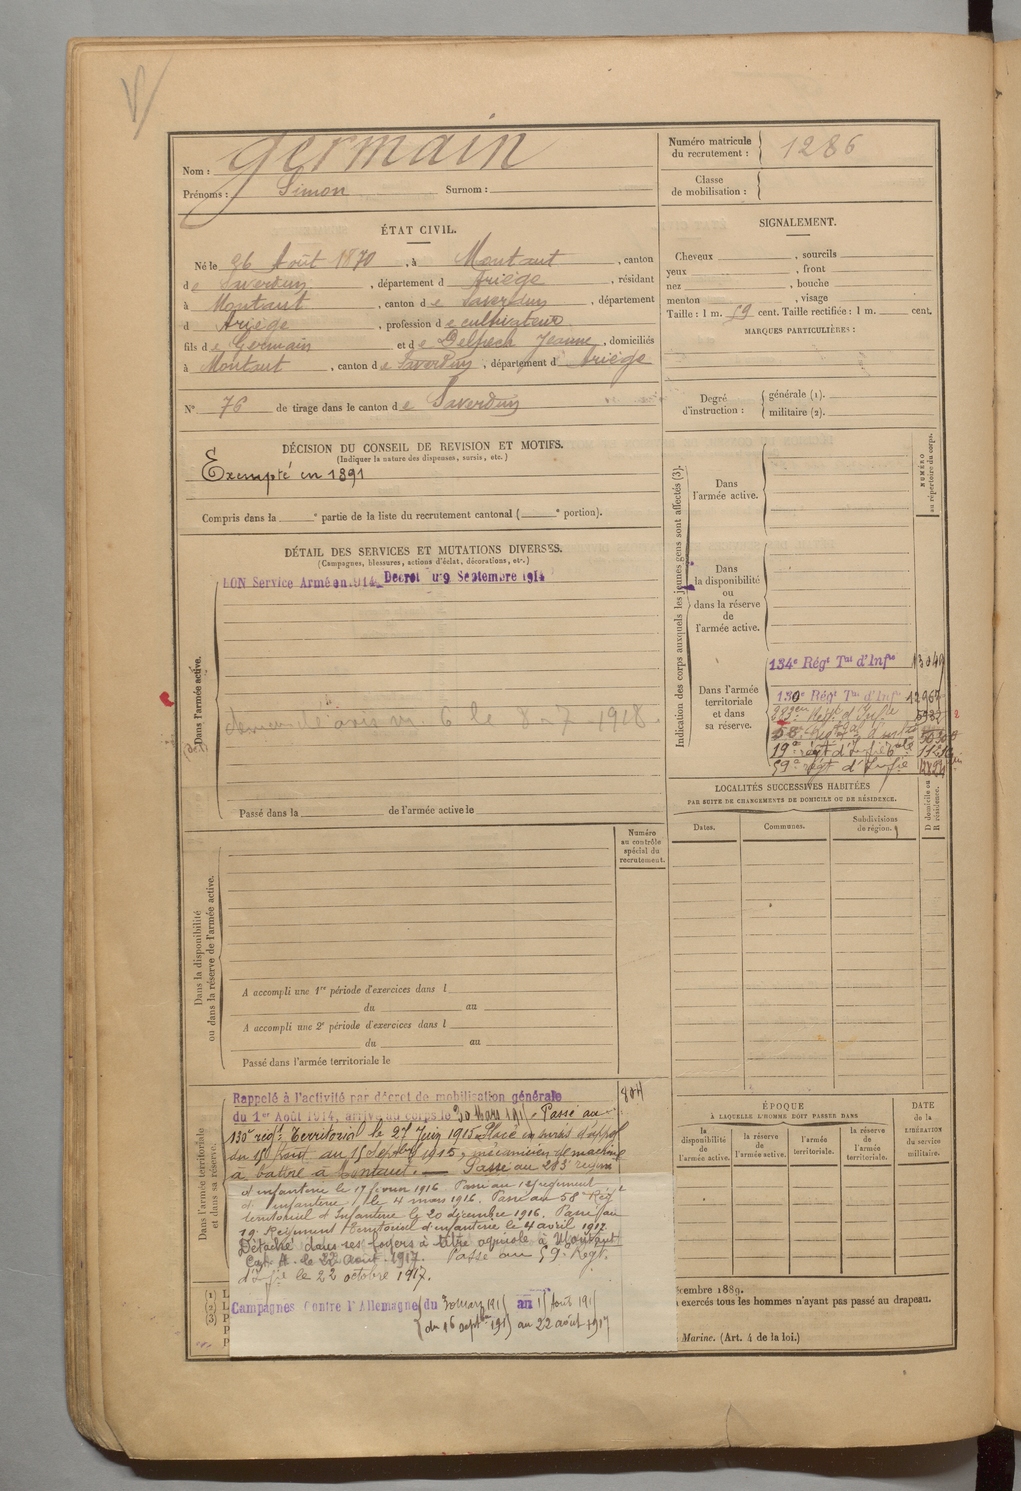 Nom : Germain
Prénoms : Simon Surnom :
Numéro matricule du recrutement : 1286
Classe de mobilisation :
ÉTAT CIVIL.
Né le 26 Août 1870, à Montaut, canton
de Saverdun, département d Ariège, résidant
à Montaut, canton de Saverdun, département
d Ariège, profession de cultivateur
fils de Germain et de Delpech Jeanne, domiciliés
à Montaut, canton de Saverdun, département d Ariège
N° 76 de tirage dans le canton de Saverdun
SIGNALEMENT.
Cheveux , sourcils
yeux , front
nez , bouche
menton , visage
Taille : 1 m. 59 cent. Taille rectifiée : 1 m. cent.
MARQUES PARTICULIÈRES :
Degré d'instruction : générale (1).
militaire (2).
DÉCISION DU CONSEIL DE REVISION ET MOTIFS.
(Indiquer la nature des dispenses, sursis, etc.)
Exempté en 1891
Compris dans la e partie de la liste du recrutement cantonal ( e portion).
DÉTAIL DES SERVICES ET MUTATIONS DIVERSES.
(Campagnes, blessures, actions d'éclat, décorations, etc.)
BON Service Armé en 1914 Décret du 9 Septembre 1914
Dans l'armée active.
le 8-7-1918.
Passé dans la de l'armée active le
Indication des corps auxquels les jeunes gens sont affectés (3).
NUMÉRO au répertoire du corps.
Dans l'armée active.
Dans la disponibilité ou dans la réserve de l'armée active.
Dans l'armée territoriale et dans sa réserve.
134e Régt Tal d'Infie
130e Régt Tal d'Infie
19e régt d'Infie
59e régt d'Infie
LOCALITÉS SUCCESSIVES HABITÉES
PAR SUITE DE CHANGEMENTS DE DOMICILE OU DE RÉSIDENCE.
Dates. Communes. Subdivisions de région. D domicile ou R résidence.
Numéro au contrôle spécial du recrutement.
Dans la disponibilité ou dans la réserve de l'armée active.
A accompli une 1re période d'exercices dans l
du au
A accompli une 2e période d'exercices dans l
du au
Passé dans l'armée territoriale le
Dans l'armée territoriale et dans sa réserve.
Rappelé à l'activité par décret de mobilisation générale
du 1er Août 1914, arrivé au corps le 30 Mars 1915. Passé au
130e régt Territorial le 27 Juin 1915. Placé en sursis d'appel
du 15 Août au 15 Septbre 1915, mécanicien de machine
à battre à Montaut. Passé au 283e régim
d'infanterie le 17 février 1916. Passé au régiment
d'infanterie le 4 mars 1916. Passé au 58e Régt
territorial d'Infanterie le 20 décembre 1916. Passé au
19e Régiment Territorial d'infanterie le 4 avril 1917
Détaché dans ses foyers à titre agricole à Montaut
Cat. A. le 22 août 1917. Passé au 59e Régt.
d'Infie le 22 octobre 1917.
Campagnes Contre l'Allemagne du 30 mars 1915 au 15 Août 1915
du 16 septbre 1915 au 22 août 1917
ÉPOQUE
À LAQUELLE L'HOMME DOIT PASSER DANS
la disponibilité de l'armée active. la réserve de l'armée active. l'armée territoriale. la réserve de l'armée territoriale.
DATE de la LIBÉRATION du service militaire.
(1)
(2)
(3)
écembre 1889.
exercés tous les hommes n'ayant pas passé au drapeau.
Marine. (Art. 4 de la loi.)